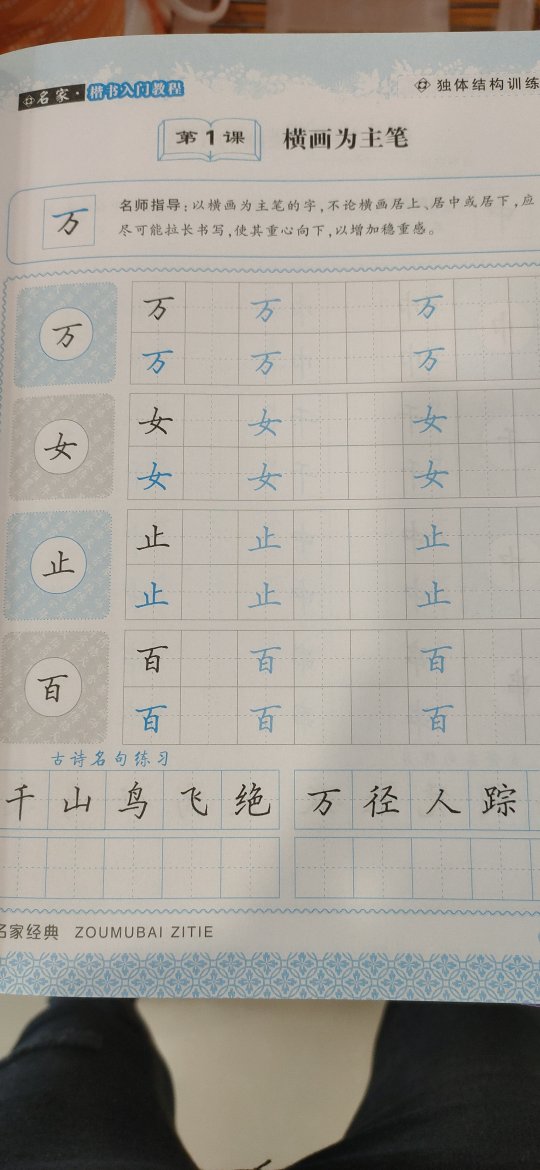 名家·楷书入门教程
独体结构训练
第1课 横画为主笔
万 名师指导:以横画为主笔的字,不论横画居上、居中或居下,应
尽可能拉长书写,使其重心向下,以增加稳重感。
万 万 万 万
万 万 万
女 女 女 女
女 女 女
止 止 止 止
止 止 止
百 百 百 百
百 百 百
古诗名句练习
千山鸟飞绝 万径人踪
名家经典 ZOUMUBAI ZITIE